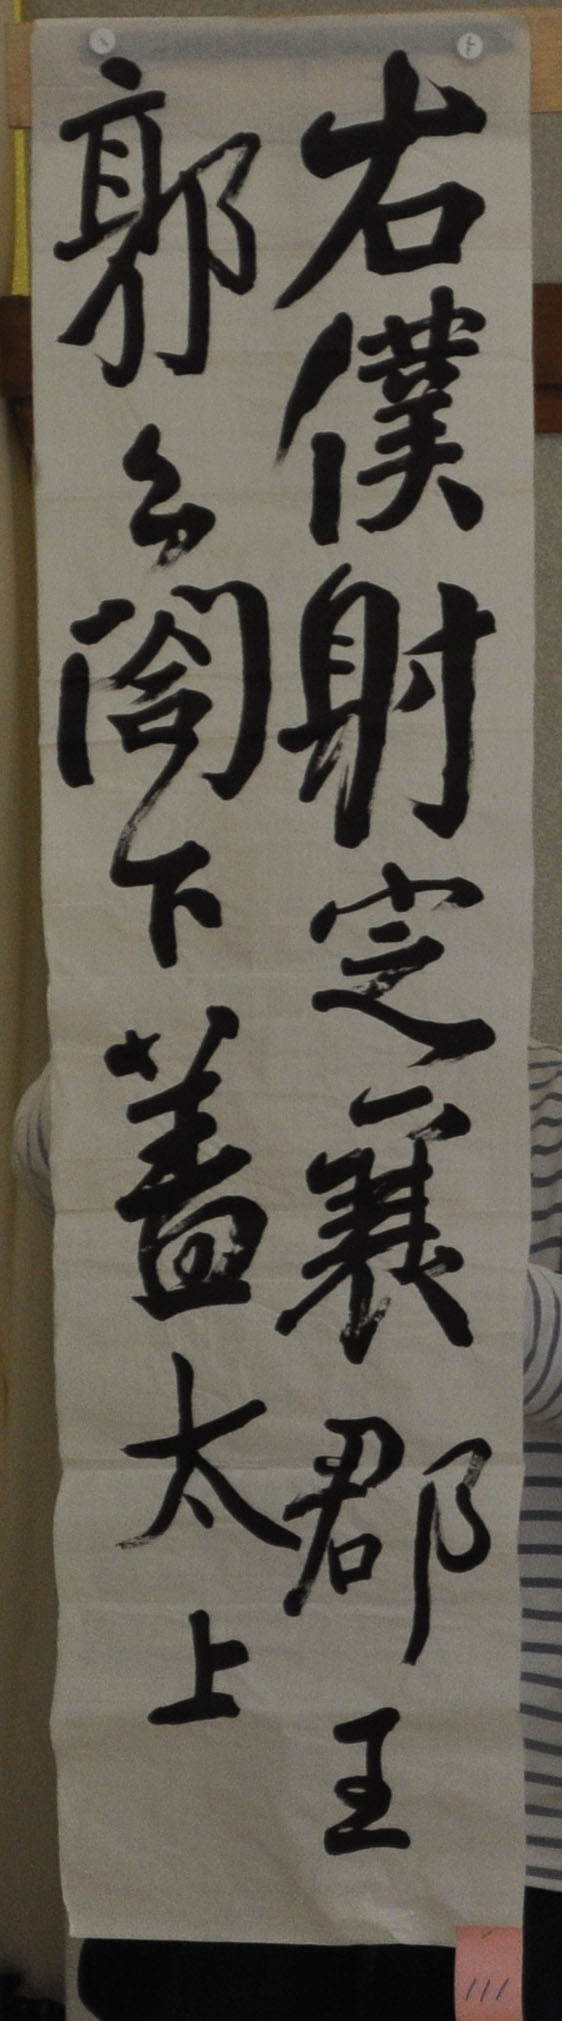 右僕射定襄郡王
郭公閤下蓋太上
111